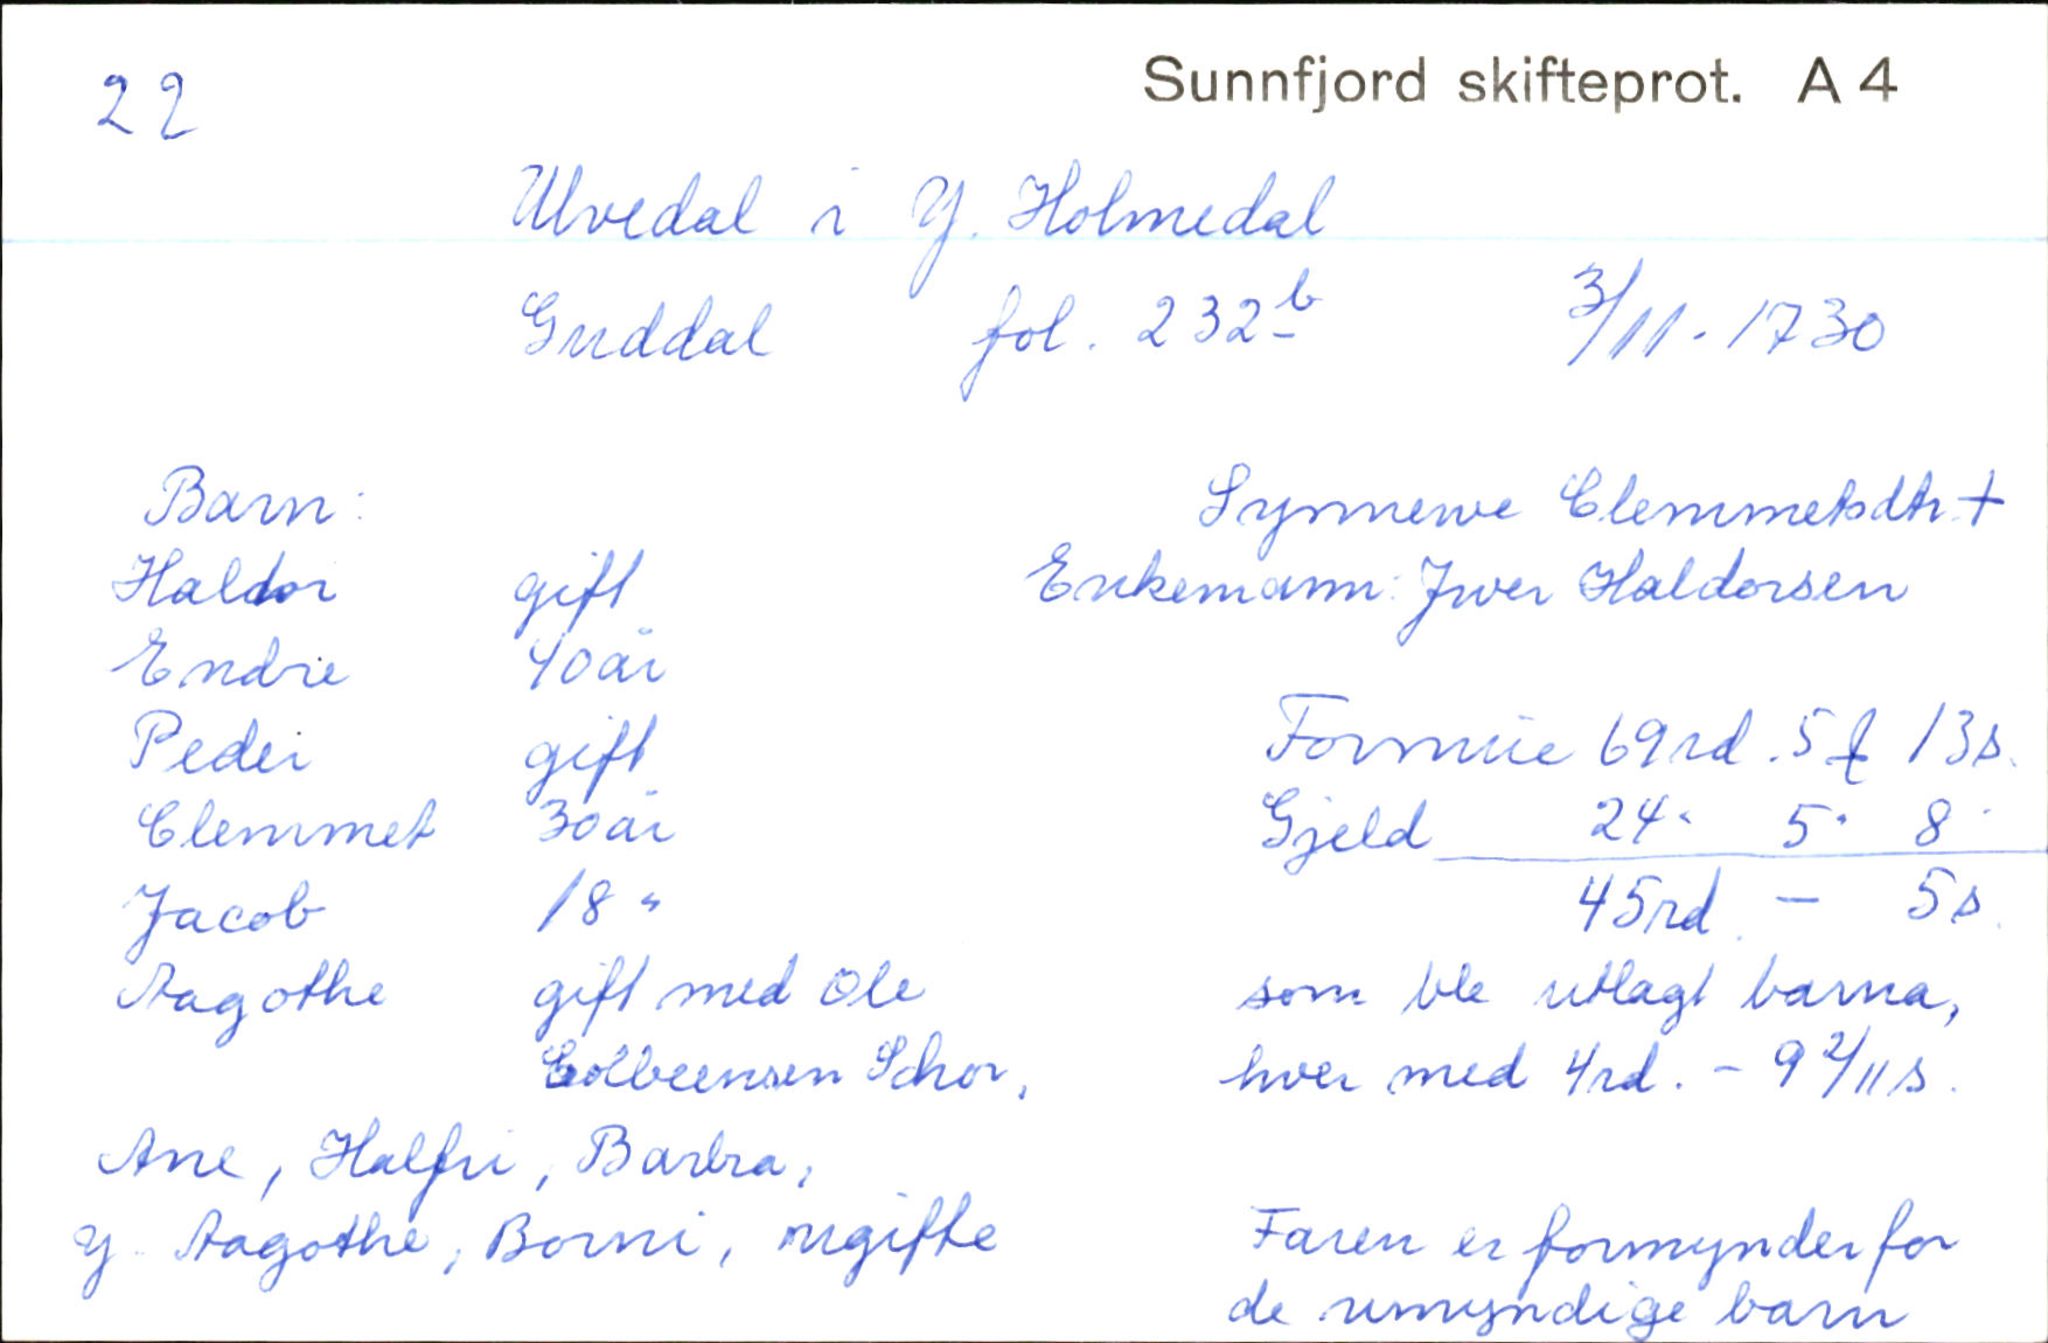 22
Sunnfjord skifteprot. A 4
Ulvedal i Y. Holmedal
Guddal fol. 232 b 3/11 - 1730
Barn:
Haldor gift
Endre 40 år
Peder gift
Clemmet 30 år
Jacob 18 "
Aagothe gift med Ole
Colbeensen Schor,
Ane, Halfri, Barbra,
y. Aagothe, Borni, ugifte
Synnewe Clemmetsdtr. +
Enkemann: Jwer Haldorsen
Formue 69 rd. 5 13 s.
Gjeld 24 " 5 " 8 "
45 rd. - 5 s.
som ble utlagt barna,
hver med 4 rd. - 9 2/11 s.
Faren er formynder for
de umyndige barn